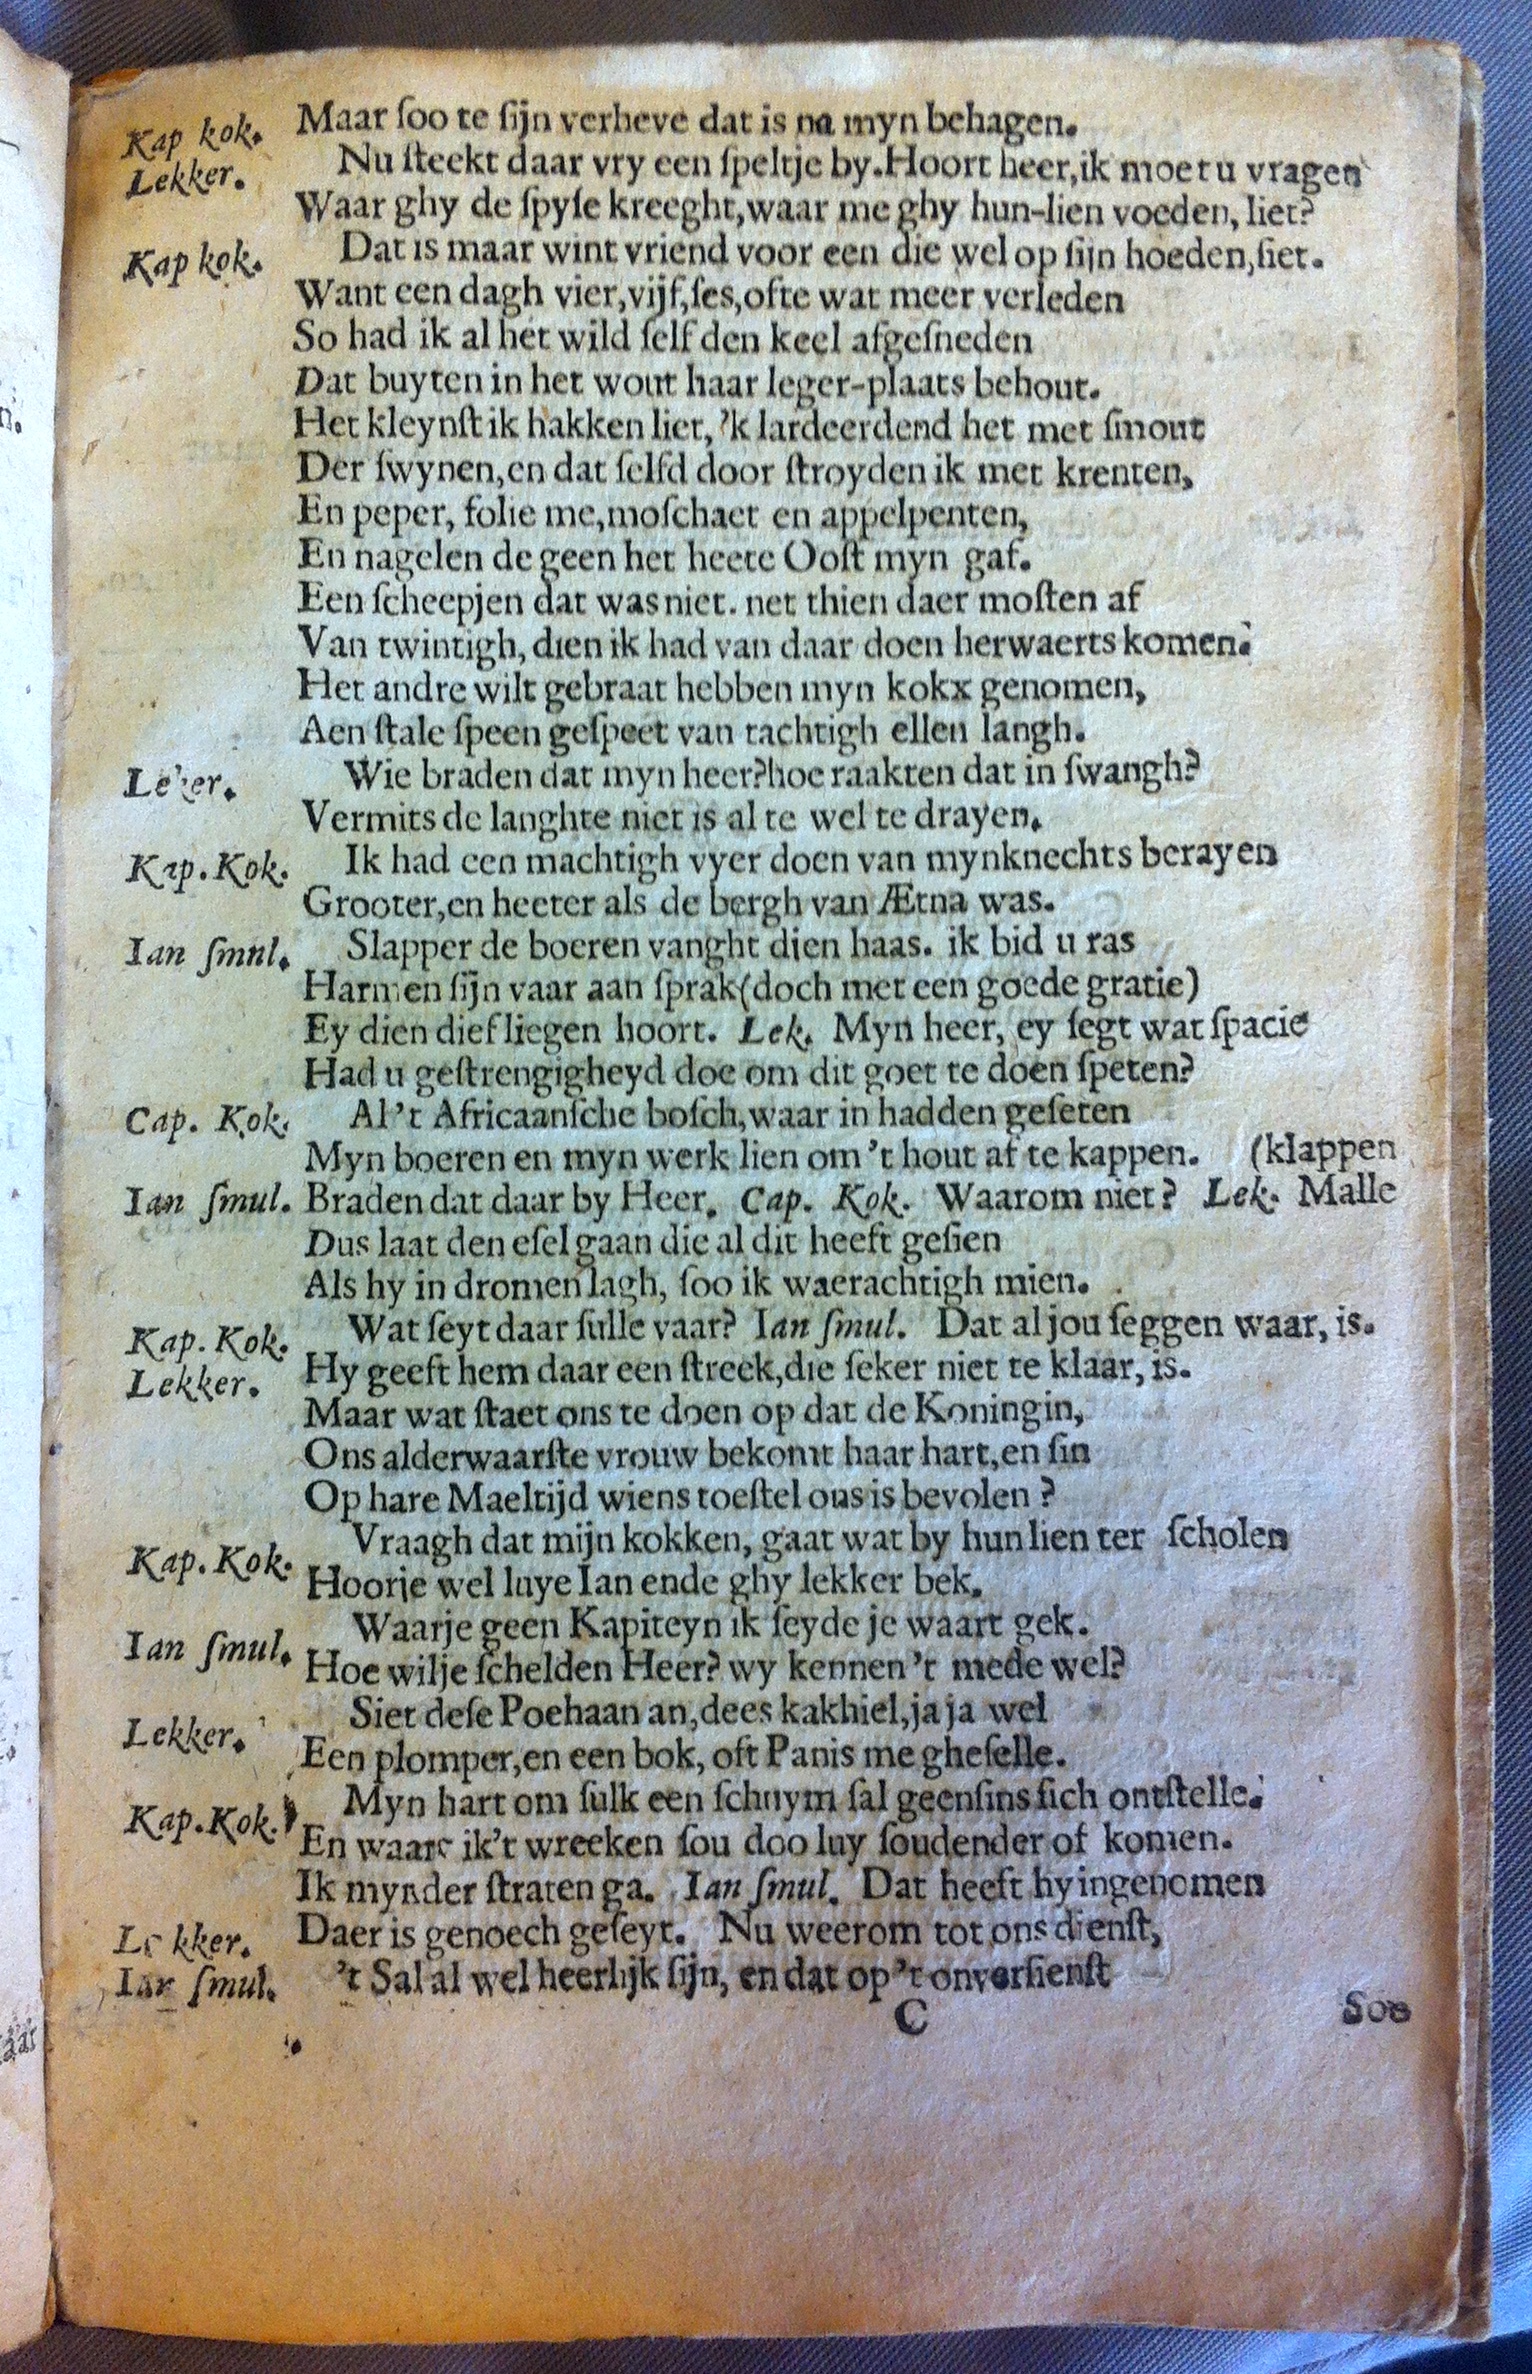 Kap kok. Maar ſoo te ſijn verheve dat is na myn behagen.
Lekker. Nu ſteekt daar vry een ſpeltje by.Hoort heer,ik moet u vragen
Waar ghy de ſpyſe kreeght,waar me ghy hun-lien voeden, liet?
Kap kok. Dat is maar wint vriend voor een die wel op ſijn hoeden,ſiet.
Want een dagh vier,vijf,ſes,ofte wat meer verleden
So had ik al het wild ſelf den keel afgeſneden
Dat buyten in het wout haar leger-plaats behout.
Het kleynſt ik hakken liet, 'k lardeerdend het met ſmout
Der ſwynen,en dat ſelfd door ſtroyden ik met krenten,
En peper, folie me,moſchaet en appelpenten,
En nagelen de geen het heete Ooſt myn gaf.
Een ſcheepjen dat was niet. net thien daer moſten af
Van twintigh, dien ik had van daar doen herwaerts komen.
Het andre wilt gebraat hebben myn kokx genomen,
Aen ſtale ſpeen geſpeet van tachtigh ellen langh.
Lekker. Wie braden dat myn heer?hoe raakten dat in ſwangh?
Vermits de langhte niet is al te wel te drayen.
Kap.Kok. Ik had een machtigh vyer doen van mynknechts berayen
Grooter,en heeter als de bergh van Ætna was.
Ian ſmul. Slapper de boeren vanght dien haas. ik bid u ras
Harmen ſijn vaar aan ſprak(doch met een goede gratie)
Ey dien dief liegen hoort. Lek. Myn heer, ey ſegt wat ſpacie
Had u geſtrengigheyd doe om dit goet te doen ſpeten?
Cap. Kok. Al't Africaanſche boſch,waar in hadden geſeten
Myn boeren en myn werk lien om't hout af te kappen. (klappen
Ian ſmul. Braden dat daar by Heer. Cap. Kok. Waarom niet? Lek. Malle
Dus laat den eſel gaan die al dit heeft geſien
Als hy in dromen lagh, ſoo ik waerachtigh mien.
Kap. Kok. Wat ſeyt daar ſulle vaar? Ian ſmul. Dat al jou ſeggen waar, is.
Lekker. Hy geeft hem daar een ſtreek,die ſeker niet te klaar, is.
Maar wat ſtaet ons te doen op dat de Koningin,
Ons alderwaarſte vrouw bekomt haar hart,en ſin
Op hare Maeltijd wiens toeſtel ons is bevolen ?
Kap. Kok. Vraagh dat mijn kokken, gaat wat by hun lien ter ſcholen
Hoorje wel luye Ian ende ghy lekker bek.
Ian ſmul. Waarje geen Kapiteyn ik ſeyde je waart gek.
Hoe wilje ſchelden Heer? wy kennen't mede wel?
Lekker. Siet deſe Poehaan an,dees kakhiel,ja ja wel
Een plomper,en een bok, oft Panis me gheſelle.
Kap.Kok. Myn hart om ſulk een ſchuym ſal geenſins ſich ontſtelle.
En waare ik't wreeken ſou doo luy ſoudender of komen.
Ik mynder ſtraten ga. Ian ſmul. Dat heeft hy ingenomen
Lekker. Daer is genoech geſeyt. Nu weerom tot ons dienſt,
Ian ſmul. 't Sal al wel heerlijk ſijn, en dat op't onverſienſt
C Soo